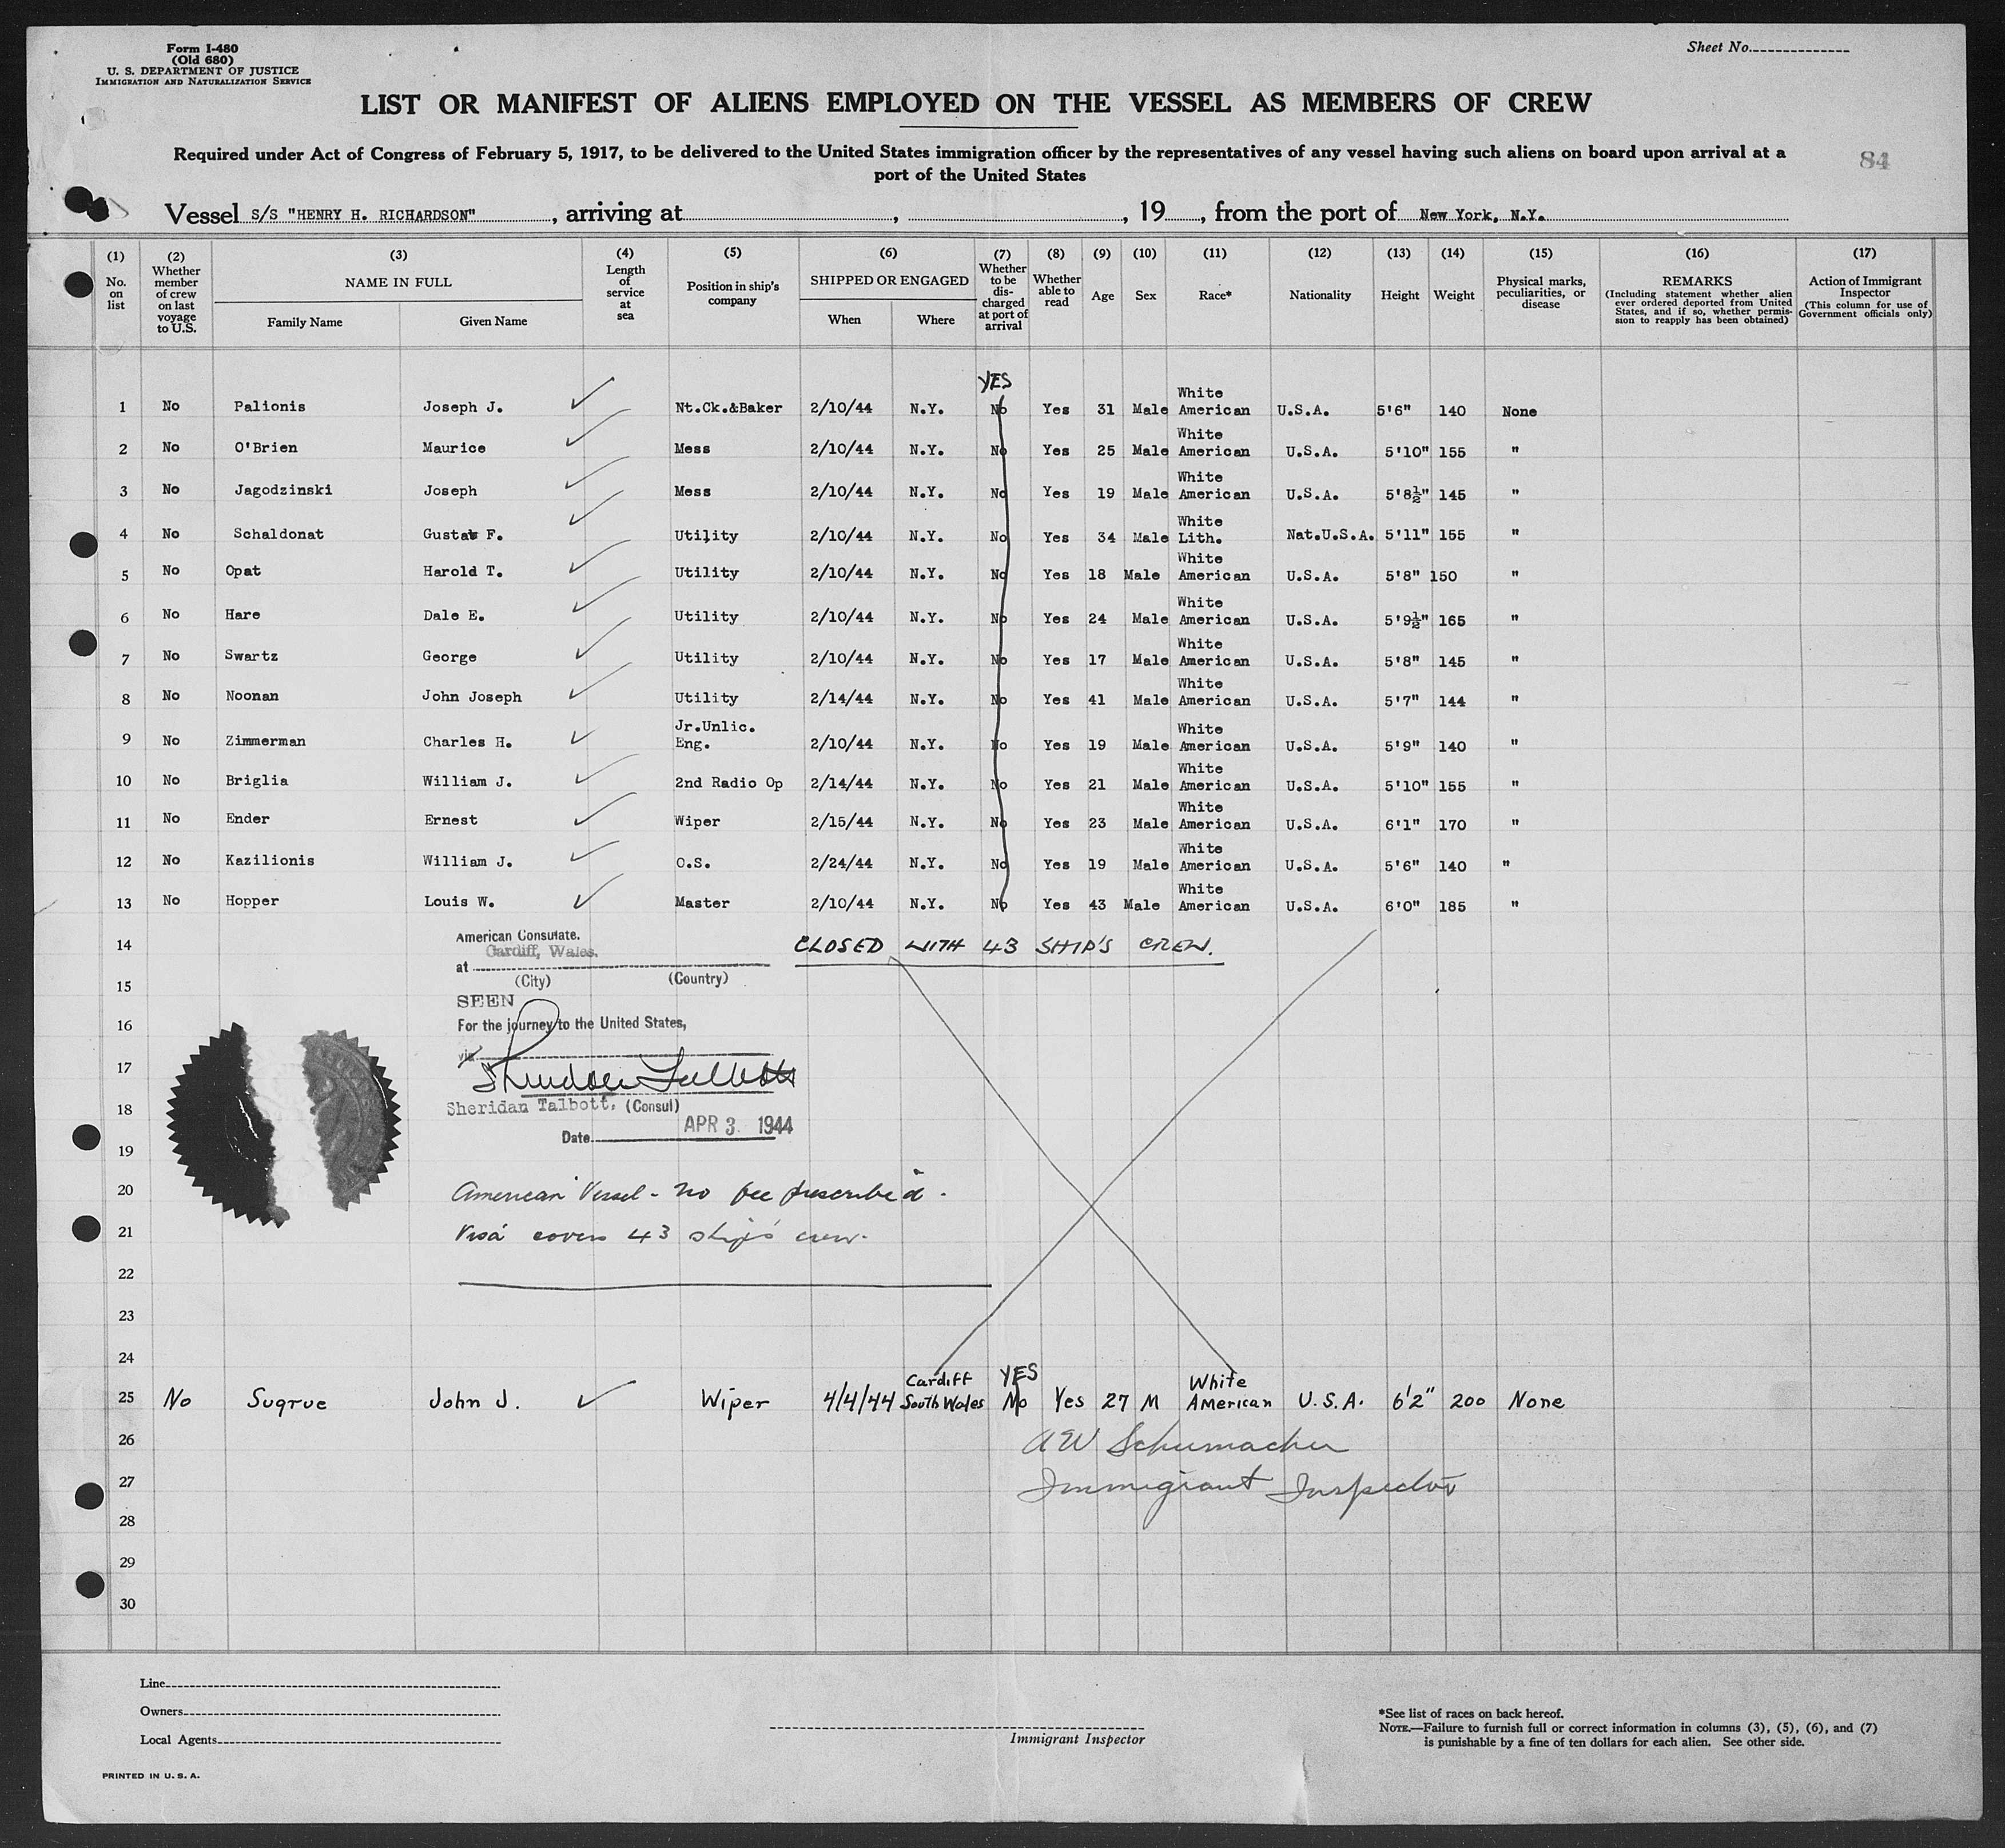 Form I-480
(Old 680)
U. S. DEPARTMENT OF JUSTICE
IMMIGRATION AND NATURALIZATION SERVICE
Sheet No.
LIST OR MANIFEST OF ALIENS EMPLOYED ON THE VESSEL AS MEMBERS OF CREW
Required under Act of Congress of February 5, 1917, to be delivered to the United States immigration officer by the representatives of any vessel having such aliens on board upon arrival at a
port of the United States
84
Vessel S/S "HENRY H. RICHARDSON", arriving at , , 19 , from the port of New York, N.Y.
(1) No. on list
(2) Whether member of crew on last voyage to U.S.
(3) NAME IN FULL
Family Name Given Name
(4) Length of service at sea
(5) Position in ship's company
(6) SHIPPED OR ENGAGED
When Where
(7) Whether to be discharged at port of arrival
(8) Whether able to read
(9) Age
(10) Sex
(11) Race*
(12) Nationality
(13) Height
(14) Weight
(15) Physical marks, peculiarities, or disease
(16) REMARKS
(Including statement whether alien ever ordered deported from United States, and if so, whether permission to reapply has been obtained)
(17) Action of Immigrant Inspector
(This column for use of Government officials only)
YES
1 No Palionis Joseph J. ✓ Nt.Ck.&Baker 2/10/44 N.Y. No Yes 31 Male White American U.S.A. 5'6" 140 None
2 No O'Brien Maurice ✓ Mess 2/10/44 N.Y. No Yes 25 Male White American U.S.A. 5'10" 155 "
3 No Jagodzinski Joseph ✓ Mess 2/10/44 N.Y. No Yes 19 Male White American U.S.A. 5'8½" 145 "
4 No Schaldonat Gustav F. ✓ Utility 2/10/44 N.Y. No Yes 34 Male White Lith. Nat.U.S.A. 5'11" 155 "
5 No Opat Harold T. ✓ Utility 2/10/44 N.Y. No Yes 18 Male White American U.S.A. 5'8" 150 "
6 No Hare Dale E. ✓ Utility 2/10/44 N.Y. No Yes 24 Male White American U.S.A. 5'9½" 165 "
7 No Swartz George ✓ Utility 2/10/44 N.Y. No Yes 17 Male White American U.S.A. 5'8" 145 "
8 No Noonan John Joseph ✓ Utility 2/14/44 N.Y. No Yes 41 Male White American U.S.A. 5'7" 144 "
9 No Zimmerman Charles H. ✓ Jr.Unlic. Eng. 2/10/44 N.Y. No Yes 19 Male White American U.S.A. 5'9" 140 "
10 No Briglia William J. ✓ 2nd Radio Op 2/14/44 N.Y. No Yes 21 Male White American U.S.A. 5'10" 155 "
11 No Ender Ernest ✓ Wiper 2/15/44 N.Y. No Yes 23 Male White American U.S.A. 6'1" 170 "
12 No Kazilionis William J. ✓ O.S. 2/24/44 N.Y. No Yes 19 Male White American U.S.A. 5'6" 140 "
13 No Hopper Louis W. ✓ Master 2/10/44 N.Y. No Yes 43 Male White American U.S.A. 6'0" 185 "
14 CLOSED WITH 43 SHIP'S CREW.
American Consulate.
at Cardiff, Wales.
(City) (Country)
15
SEEN
16 For the journey to the United States,
via
17 Sheridan Talbott
18 Sheridan Talbott, (Consul)
Date APR 3 1944
19
20 American Vessel - no fee prescribed.
21 Visa covers 43 ship's crew.
22
23
24
25 No Sugrue John J. ✓ Wiper 4/4/44 Cardiff South Wales YES No Yes 27 M White American U.S.A. 6'2" 200 None
26 A W Schumacher
27 Immigrant Inspector
28
29
30
Line
Owners
Local Agents
Immigrant Inspector
*See list of races on back hereof.
NOTE.—Failure to furnish full or correct information in columns (3), (5), (6), and (7)
is punishable by a fine of ten dollars for each alien. See other side.
PRINTED IN U. S. A.